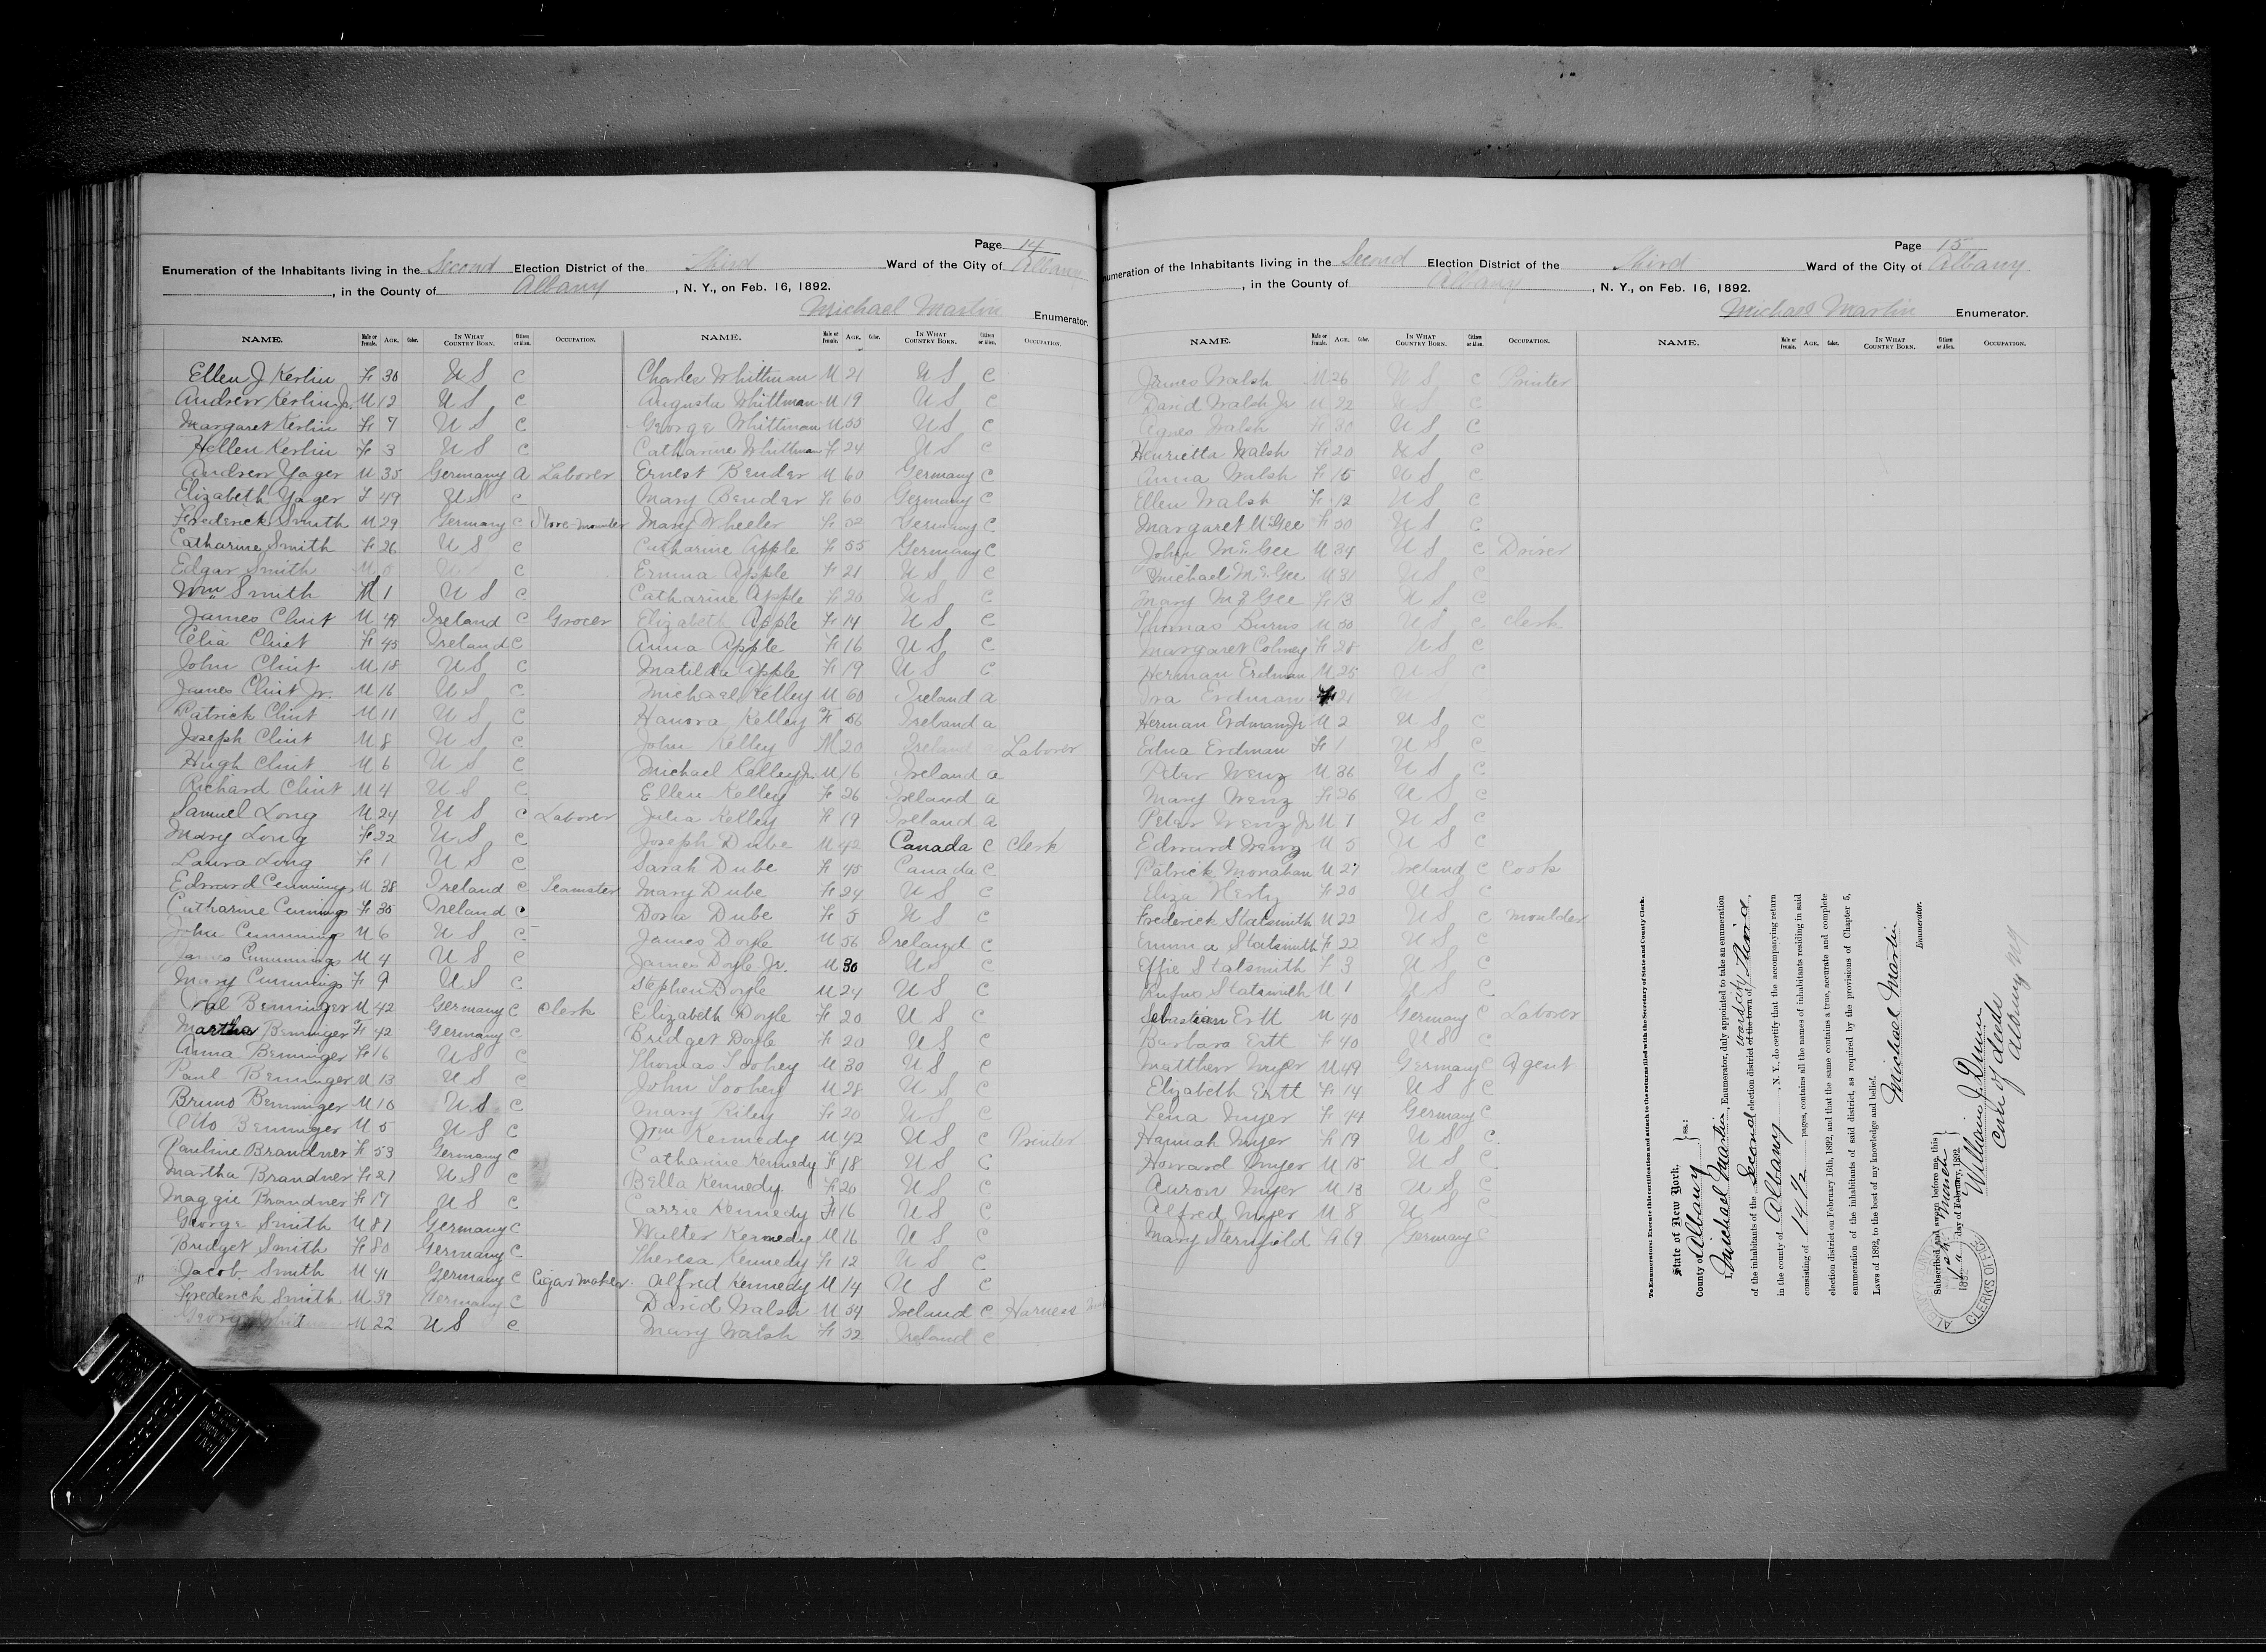 Page 14
Enumeration of the Inhabitants living in the Second Election District of the Third Ward of the City of Albany
, in the County of Albany , N. Y., on Feb. 16, 1892.
Michael Martin Enumerator.
NAME. Male or Female. AGE. Color. IN WHAT COUNTRY BORN. Citizen or Alien. OCCUPATION.
Ellen J Kerlin F 30 U S C
Andrew Kerlin Jr. M 12 U S C
Margaret Kerlin F 7 U S C
Hellen Kerlin F 3 U S C
Andrew Yager M 35 Germany A Laborer
Elizabeth Yager F 49 U S C
Frederick Smith M 29 Germany C Stove-moulder
Catharine Smith F 26 U S C
Edgar Smith M C
Wm Smith M 1 U S C
James Clint M Ireland C Grocer
Celia Clint F 45 Ireland C
John Clint M 18 U S C
James Clint Jr. M 16 U S C
Patrick Clint M 11 U S C
Joseph Clint M 8 U S C
Hugh Clint M 6 U S C
Richard Clint M 4 U S C
Samuel Long M 24 U S C Laborer
Mary Long F 22 U S C
Laura Long F 1 U S C
Edward Cummings M 38 Ireland C Teamster
Catharine Cummings F 35 Ireland C
John Cummings M 6 U S C
James Cummings M 4 U S C
Mary Cummings F 9 U S C
Benninger M 42 Germany C Clerk
Martha Benninger F 42 Germany C
Anna Benninger F 16 U S C
Paul Benninger M 13 U S C
Bruno Benninger M 10 U S C
Otto Benninger M 5 U S C
Pauline Brandner F 53 Germany C
Martha Brandner F 21 U S C
Maggie Brandner F 17 U S C
George Smith M 81 Germany C
Bridget Smith F 80 Germany C
Jacob Smith M 41 Germany C Cigar maker
Frederick Smith M 39 Germany C
George M 22 U S C
NAME. Male or Female. AGE. Color. IN WHAT COUNTRY BORN. Citizen or Alien. OCCUPATION.
Charles Whittman M 21 U S C
Augusta Whittman M 19 U S C
George Whittman M 55 U S C
Catharine Whittman F 24 U S C
Ernest Bender M 60 Germany C
Mary Bender F 60 Germany C
Mary Wheeler F 52 Germany C
Catharine Apple F 55 Germany C
Emma Apple F 21 U S C
Catharine Apple F 20 U S C
Elizabeth Apple F 14 U S C
Anna Apple F 16 U S C
Matilda Apple F 19 U S C
Michael Kelley M 60 Ireland a
Hanora Kelley F 56 Ireland a
John Kelley M 20 Ireland Laborer
Michael Kelley Jr. M 16 Ireland a
Ellen Kelley F 26 Ireland a
Julia Kelley F 19 Ireland a
Joseph Dube M 42 Canada C Clerk
Sarah Dube F 45 Canada C
Mary Dube F 24 U S C
Dora Dube F 5 U S C
James Doyle M 56 Ireland C
James Doyle Jr. M 30 U S C
Stephen Doyle M 24 U S C
Elizabeth Doyle F 20 U S C
Bridget Doyle F 20 U S C
Thomas Toohey M 30 U S C
John Toohey M 28 U S C
Mary Riley F 20 U S C
Wm Kennedy M 42 U S C Printer
Catharine Kennedy F 18 U S C
Bella Kennedy F 20 U S C
Carrie Kennedy F 16 U S C
Walter Kennedy M 16 U S C
Theresa Kennedy F 12 U S C
Alfred Kennedy M 14 U S C
David Walsh M 54 Ireland C Harness
Mary Walsh F 52 Ireland C
Page 15
Enumeration of the Inhabitants living in the Second Election District of the Third Ward of the City of Albany
, in the County of Albany , N. Y., on Feb. 16, 1892.
Michael Martin Enumerator.
NAME. Male or Female. AGE. Color. IN WHAT COUNTRY BORN. Citizen or Alien. OCCUPATION.
James Walsh M 26 U S C Printer
David Walsh Jr M 22 U S C
Agnes Walsh F 30 U S C
Henrietta Walsh F 20 U S C
Anna Walsh F 15 U S C
Ellen Walsh F 12 U S C
Margaret McGee F 50 U S C
John McGee M 34 U S C Driver
Michael McGee M 31 U S C
Mary McGee F 13 U S C
Thomas Burns M 50 U S C Clerk
Margaret F U S C
Herman Erdman M 25 U S C
Erdman F 21
Herman Erdman Jr M 2 U S C
Edna Erdman F 1 U S C
Peter Wenz M 36 U S C
Mary Wenz F 26 U S C
Peter Wenz Jr M 7 U S C
Edward Wenz M 5 U S C
Patrick Monahan M 27 Ireland C Cook
Eliza F 20 U S C
Frederick Statsmith M 22 U S C moulder
Emma Statsmith F 22 U S C
Effie Statsmith F 3 U S C
Rufus Statsmith M 1 U S C
Sebastian Ertt M 40 Germany C Laborer
Barbara Ertt F 40 U S C
Matthew Myer M 49 Germany C Agent
Elizabeth Ertt F 14 U S C
Lena Myer F 44 Germany C
Hannah Myer F 19 U S C
Howard Myer M 15 U S C
Aaron Myer M 13 U S C
Alfred Myer M 8 U S C
Mary Sternfeld F 69 Germany C
NAME. Male or Female. AGE. Color. IN WHAT COUNTRY BORN. Citizen or Alien. OCCUPATION.
To Enumerators: Execute this certification and attach to the returns filed with the Secretary of State and County Clerk.
State of New York,
County of Albany } ss.:
I, Michael Martin, Enumerator, duly appointed to take an enumeration
of the inhabitants of the Second election district of the town of ward city Third,
in the county of Albany , N. Y., do certify that the accompanying return
consisting of 14 1/2 pages, contains all the names of inhabitants residing in said
election district on February 16th, 1892, and that the same contains a true, accurate and complete
enumeration of the inhabitants of said district, as required by the provisions of Chapter 5,
Laws of 1892, to the best of my knowledge and belief.
Michael Martin
Enumerator.
Subscribed and sworn before me, this
1st day of February, 1892 March
William J. Dunn
Com of deeds
Albany NY
ALBANY COUNTY CLERK'S OFFICE 1892